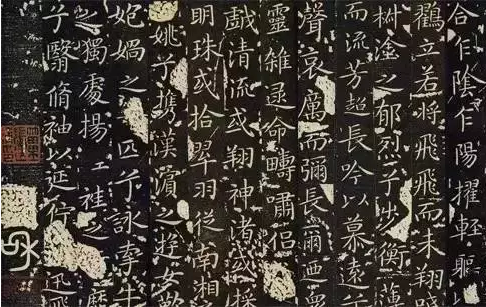 合乍陰乍陽擢輕軀
立若將飛飛而未翔
椒塗之郁烈兮步衡薄
而流芳超長吟以慕遠
聲哀厲而彌長爾迺
靈雜遝命疇嘯侶
戲清流或翔神渚或採
明珠或拾翠羽從南湘
姚兮攜漢濱之遊女歎
媧之匹兮詠牽牛
之獨處揚袿之
兮翳脩袖以延佇迅飛